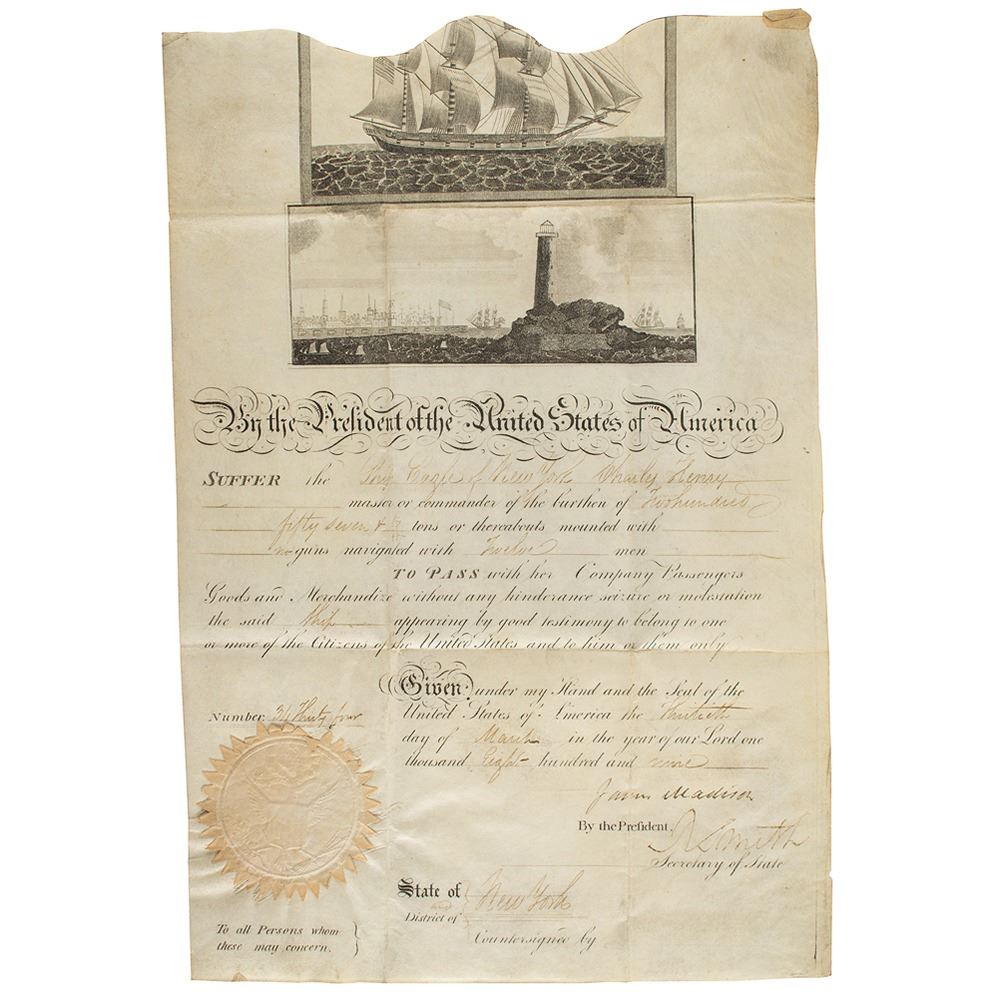 By the President of the United States of America
SUFFER the Ship Eagle of New York Charles Henry
master or commander of the burthen of Two hundred
fifty seven & tons or thereabouts mounted with
no guns navigated with Twelve men
TO PASS with her Company Passengers
Goods and Merchandize without any hinderance seizure or molestation
the said Ship appearing by good testimony to belong to one
or more of the Citizens of the United States and to him or them only
Given under my Hand and the Seal of the
United States of America the Thirtieth
Number 34 Thirty four
day of March in the year of our Lord one
thousand Eight hundred and nine
James Madison
By the President,
R Smith
Secretary of State
State of
and New York
District of
Countersigned by
To all Persons whom
these may concern.